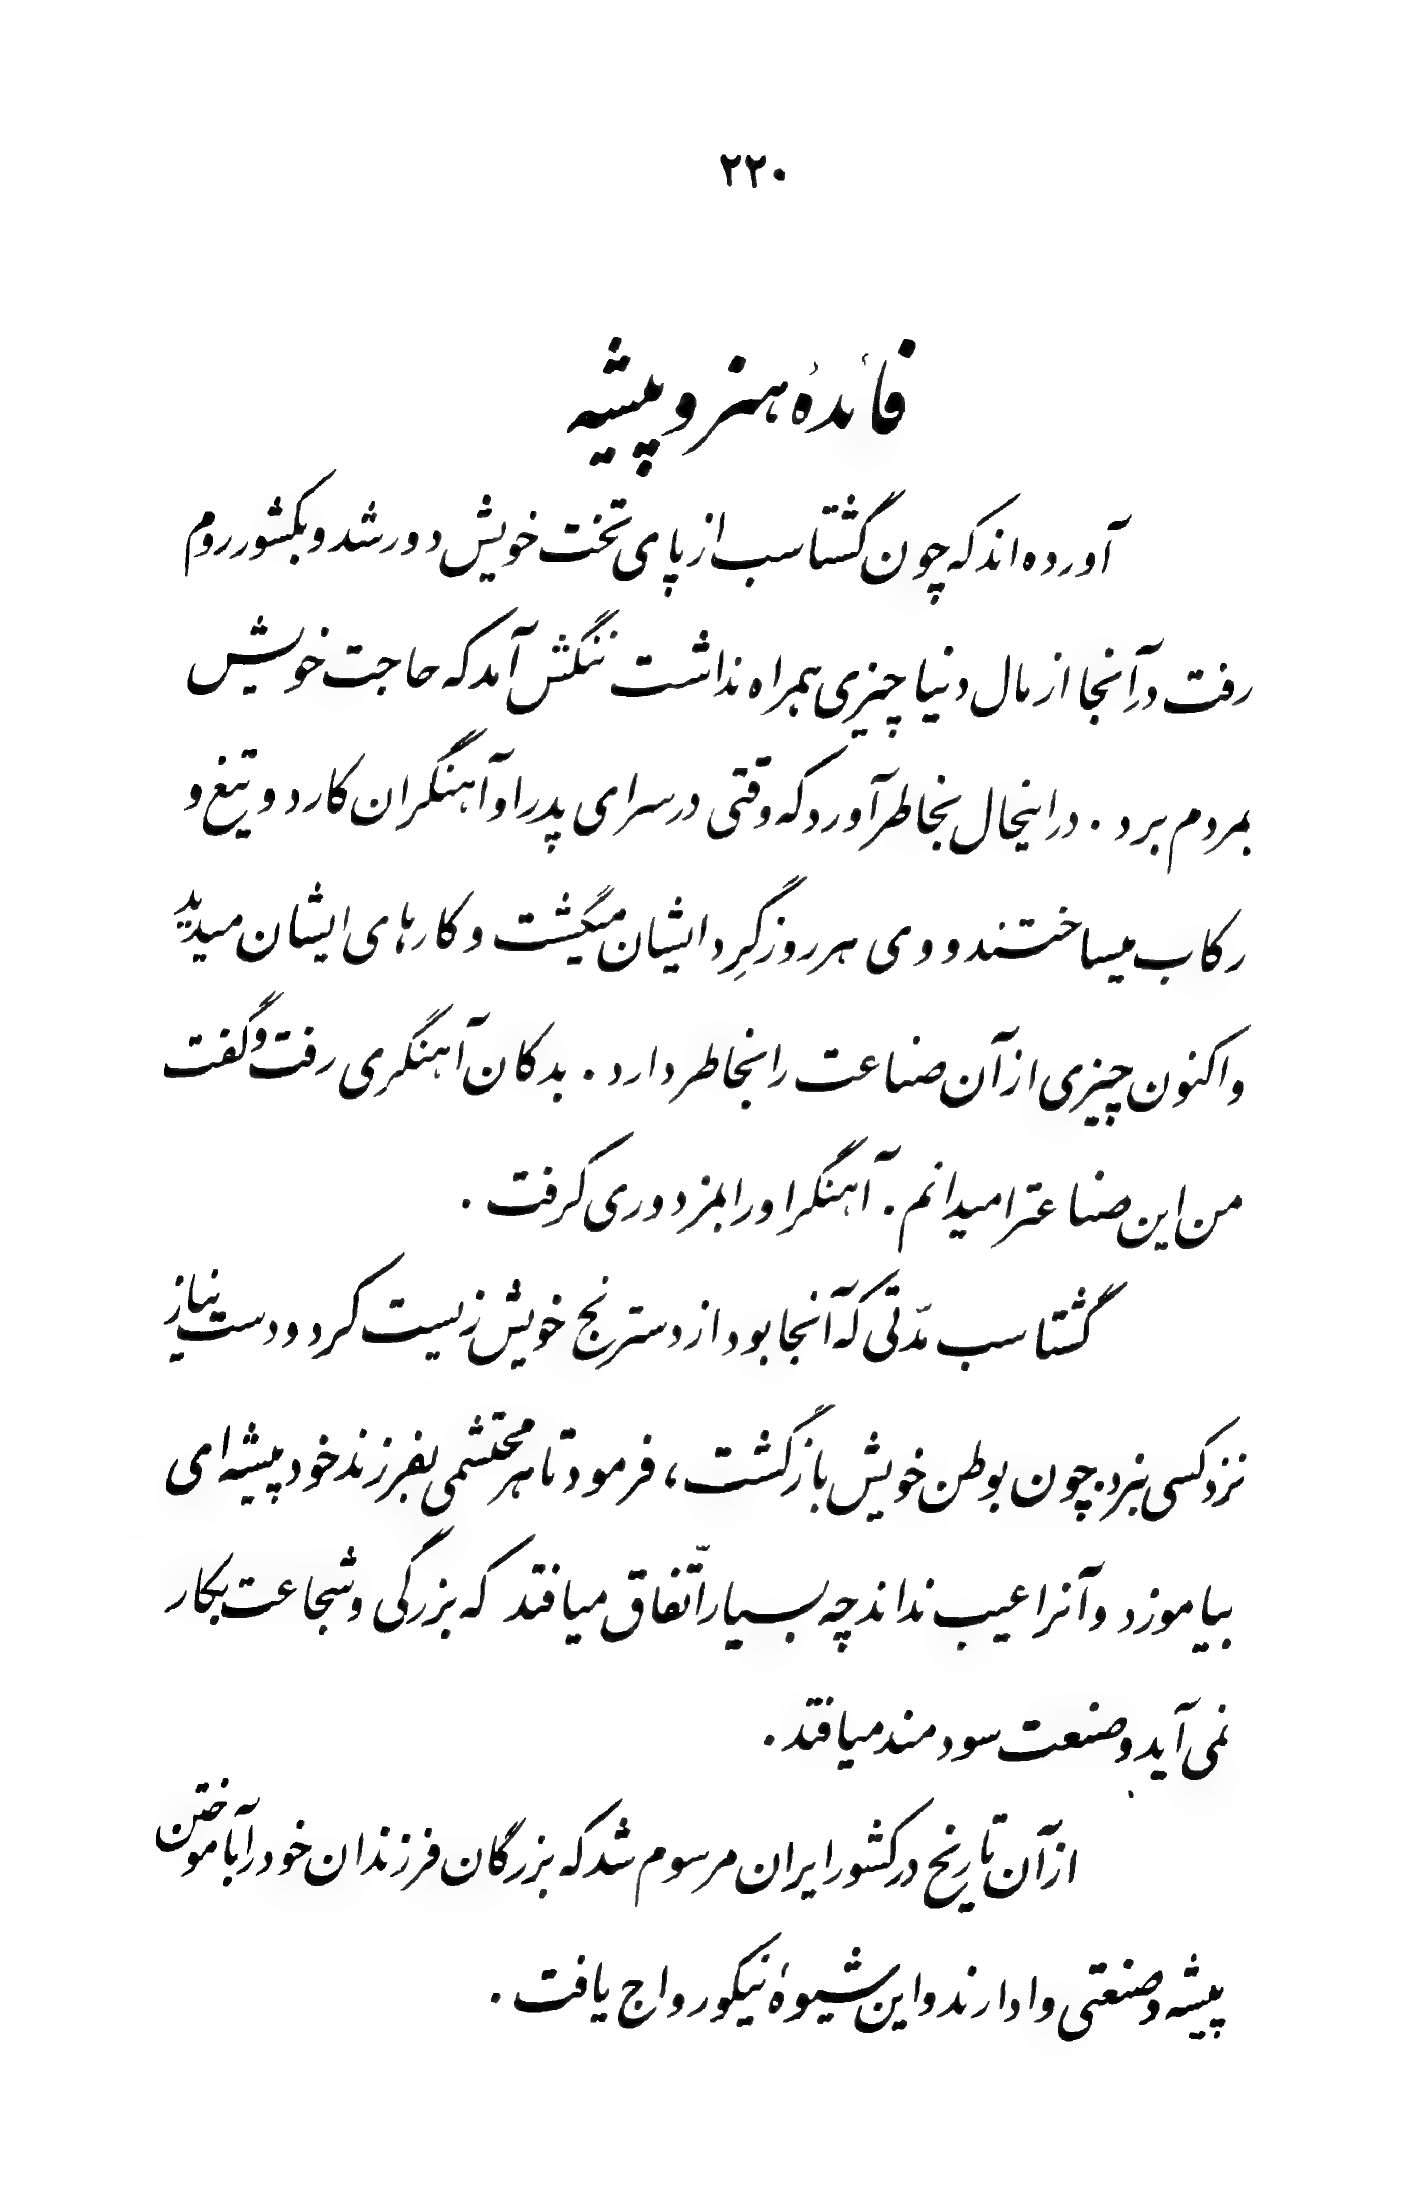 ۲۲۰
فائدهٔ هنر و پیشه
آورده‌اند که چون گشتاسب از پای تخت خویش دور شد و بکشور روم
رفت در آنجا از مال دنیا چیزی همراه نداشت ننگش آمد که حاجت خویش
بمردم برد . در اینحال بخاطر آورد که وقتی در سرای پدر او آهنگران کارد و تیغ و
رکاب میساختند و وی هر روز گِرد ایشان میگشت و کارهای ایشان میدید
و اکنون چیزی از آن صناعت را بخاطر دارد . بدکان آهنگری رفت و گفت
من این صناعترا میدانم . آهنگر او را بمزدوری گرفت .
گشتاسب مدّتی که آنجا بود از دسترنج خویش زیست کرد و دست نیاز
نزد کسی نبرد . چون بوطن خویش باز گشت ، فرمود تا هر محتشمی بفرزند خود پیشه‌ای
بیاموزد و آنرا عیب نداند چه بسیار اتّفاق میافتد که بزرگی و شجاعت بکار
نمی‌آید و صنعت سودمند میافتد .
از آن تاریخ در کشور ایران مرسوم شد که بزرگان فرزندان خود را بآموختن
پیشه و صنعتی وادارند و این شیوهٔ نیکو رواج یافت .